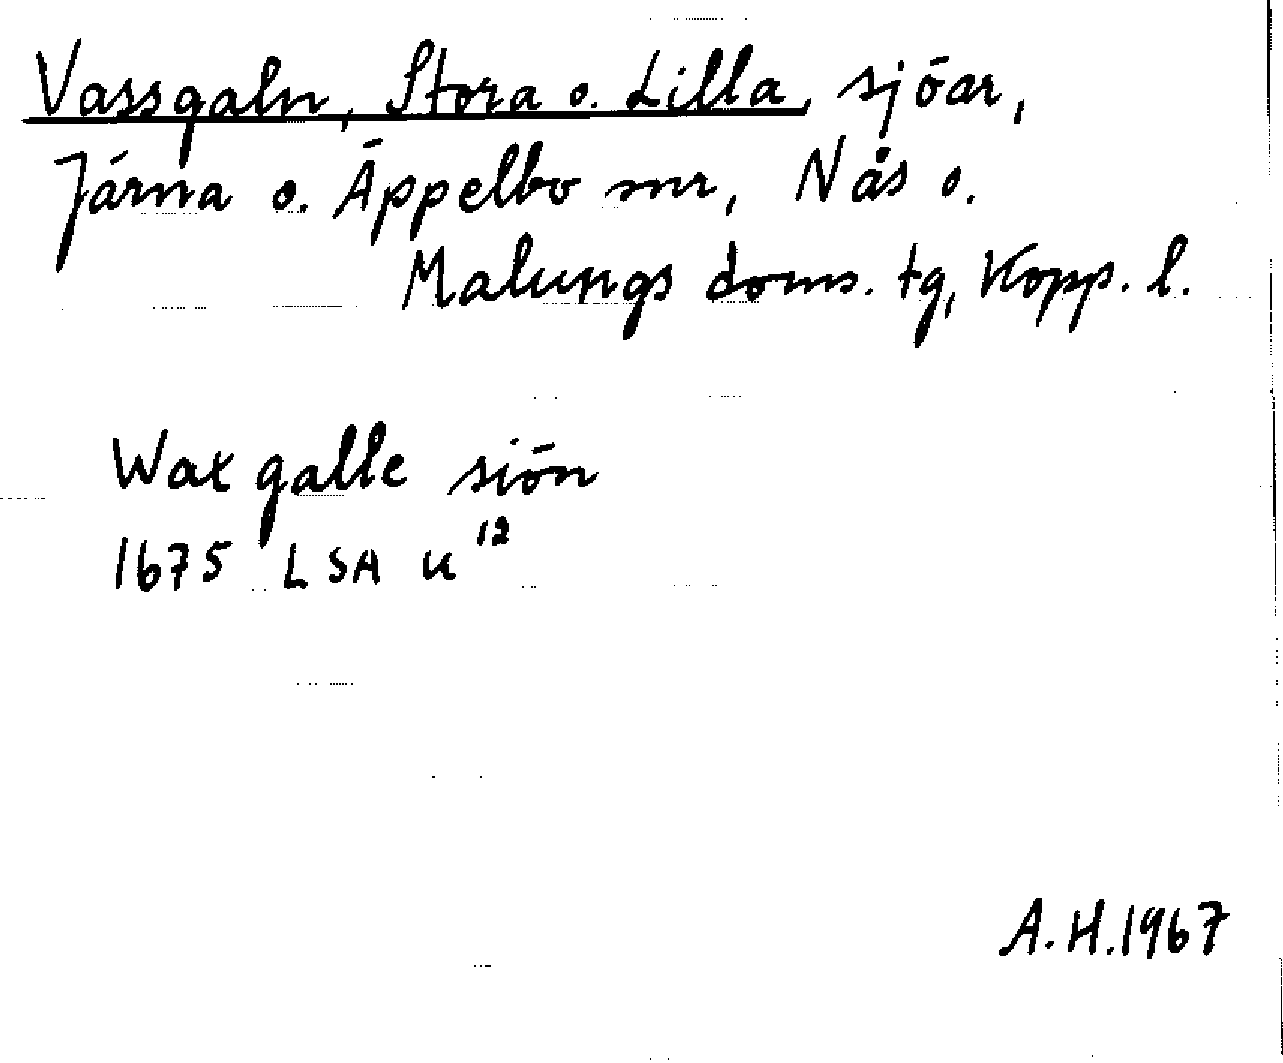 Vassgaln, Stora o. Lilla, sjöar,
Järna o. Äppelbo snr, Nås o.
Malungs doms. tg, Kopp. l.
Wax galle siön
1675 LSA U 12
A.H.1967